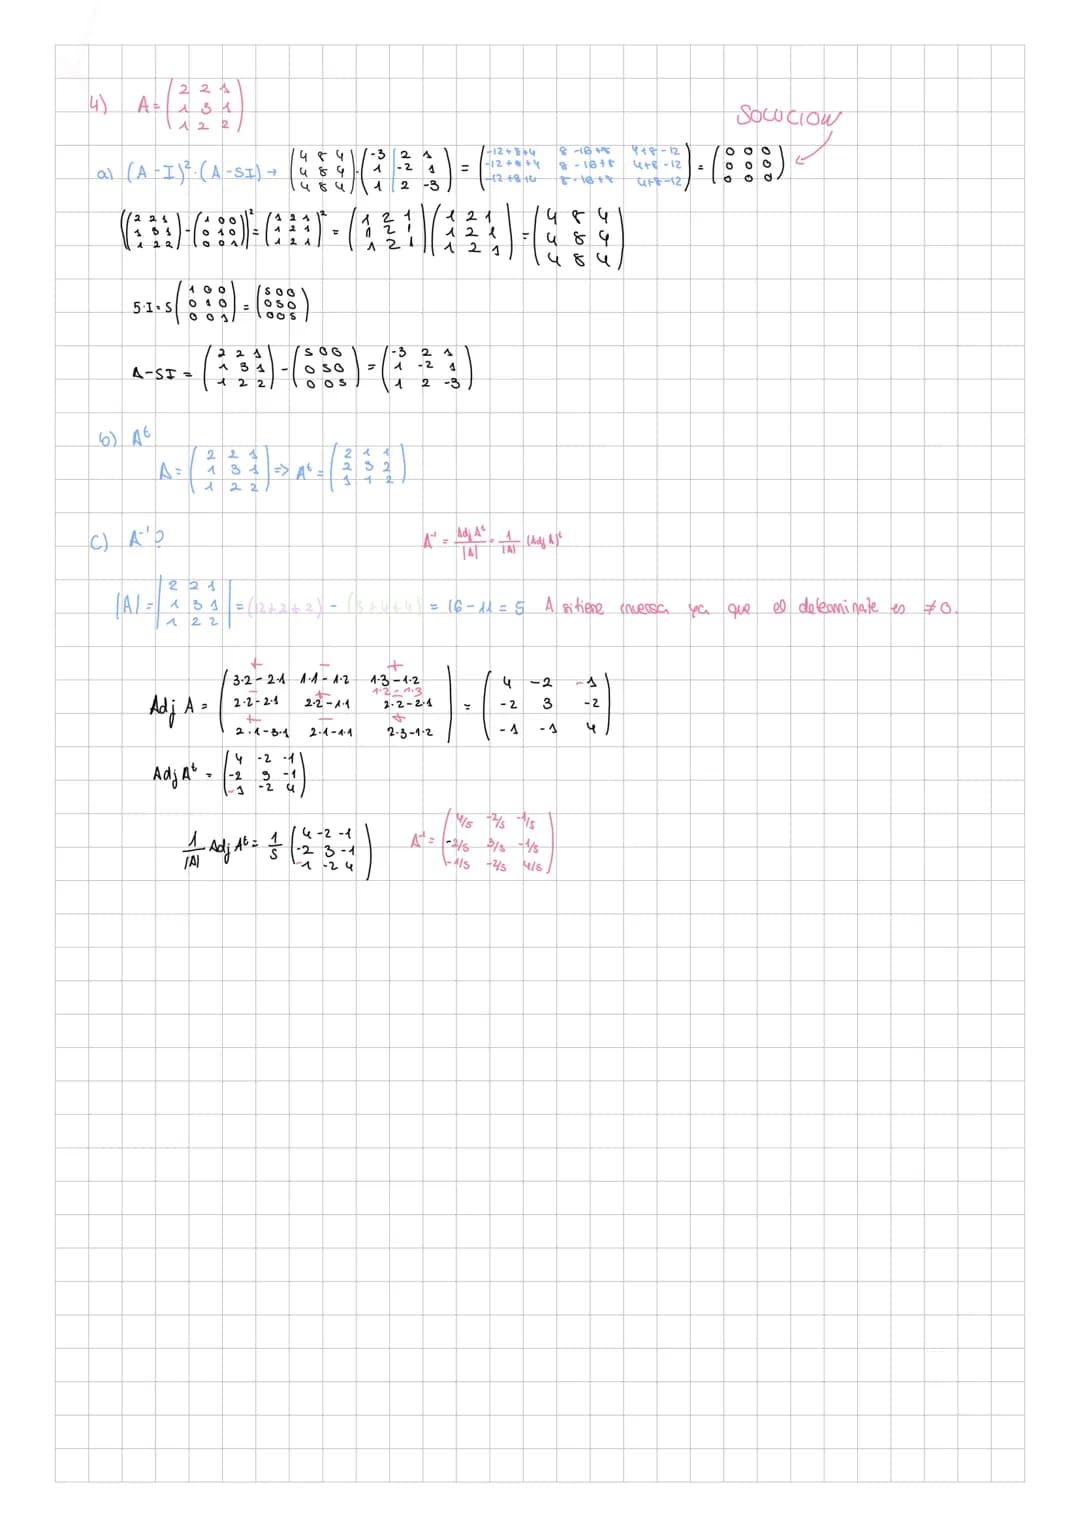 4) A = ( 2 2 1 / 1 3 1 / 1 2 2 )
SOLUCION
a) (A-I)²·(A-5I) → ( 4 8 4 / 4 8 4 / 4 8 4 )·( -3 2 1 / 1 -2 1 / 1 2 -3 ) = ( -12+8+4 8-16+8 4+8-12 / -12+8+4 8-16+8 4+8-12 / -12+8+4 8-16+8 4+8-12 ) = ( 0 0 0 / 0 0 0 / 0 0 0 )
(( 2 2 1 / 1 3 1 / 1 2 2 ) - ( 1 0 0 / 0 1 0 / 0 0 1 ))² = ( 1 2 1 / 1 2 1 / 1 2 1 )² = ( 1 2 1 / 1 2 1 / 1 2 1 )( 1 2 1 / 1 2 1 / 1 2 1 ) = ( 4 8 4 / 4 8 4 / 4 8 4 )
5·I = 5( 1 0 0 / 0 1 0 / 0 0 1 ) = ( 5 0 0 / 0 5 0 / 0 0 5 )
A-5I = ( 2 2 1 / 1 3 1 / 1 2 2 ) - ( 5 0 0 / 0 5 0 / 0 0 5 ) = ( -3 2 1 / 1 -2 1 / 1 2 -3 )
b) Aᵗ
A = ( 2 2 1 / 1 3 1 / 1 2 2 ) => Aᵗ = ( 2 1 1 / 2 3 2 / 1 1 2 )
C) A⁻¹?
A⁻¹ = Adj Aᵗ / |A| = 1/|A| (Adj A)ᵗ
|A| = | 2 2 1 / 1 3 1 / 1 2 2 | = (12+2+2) - (3+4+4) = 16-11 = 5 A si tiene inversa ya que el determinate es ≠0.
Adj A = ( 3·2-2·1 1·1-1·2 1·3-1·2 / 1·2-1·3 / 2·2-2·1 2·2-1·1 2·2-2·1 / 2·1-3·1 2·1-1·1 2·3-1·2 ) = ( 4 -2 -1 / -2 3 -2 / -1 -1 4 )
Adj Aᵗ = ( 4 -2 -1 / -2 3 -1 / -1 -2 4 )
1/|A| Adj Aᵗ = 1/5 ( 4 -2 -1 / -2 3 -1 / -1 -2 4 )
A⁻¹ = ( 4/5 -2/5 -1/5 / -2/5 3/5 -1/5 / -1/5 -2/5 4/5 )